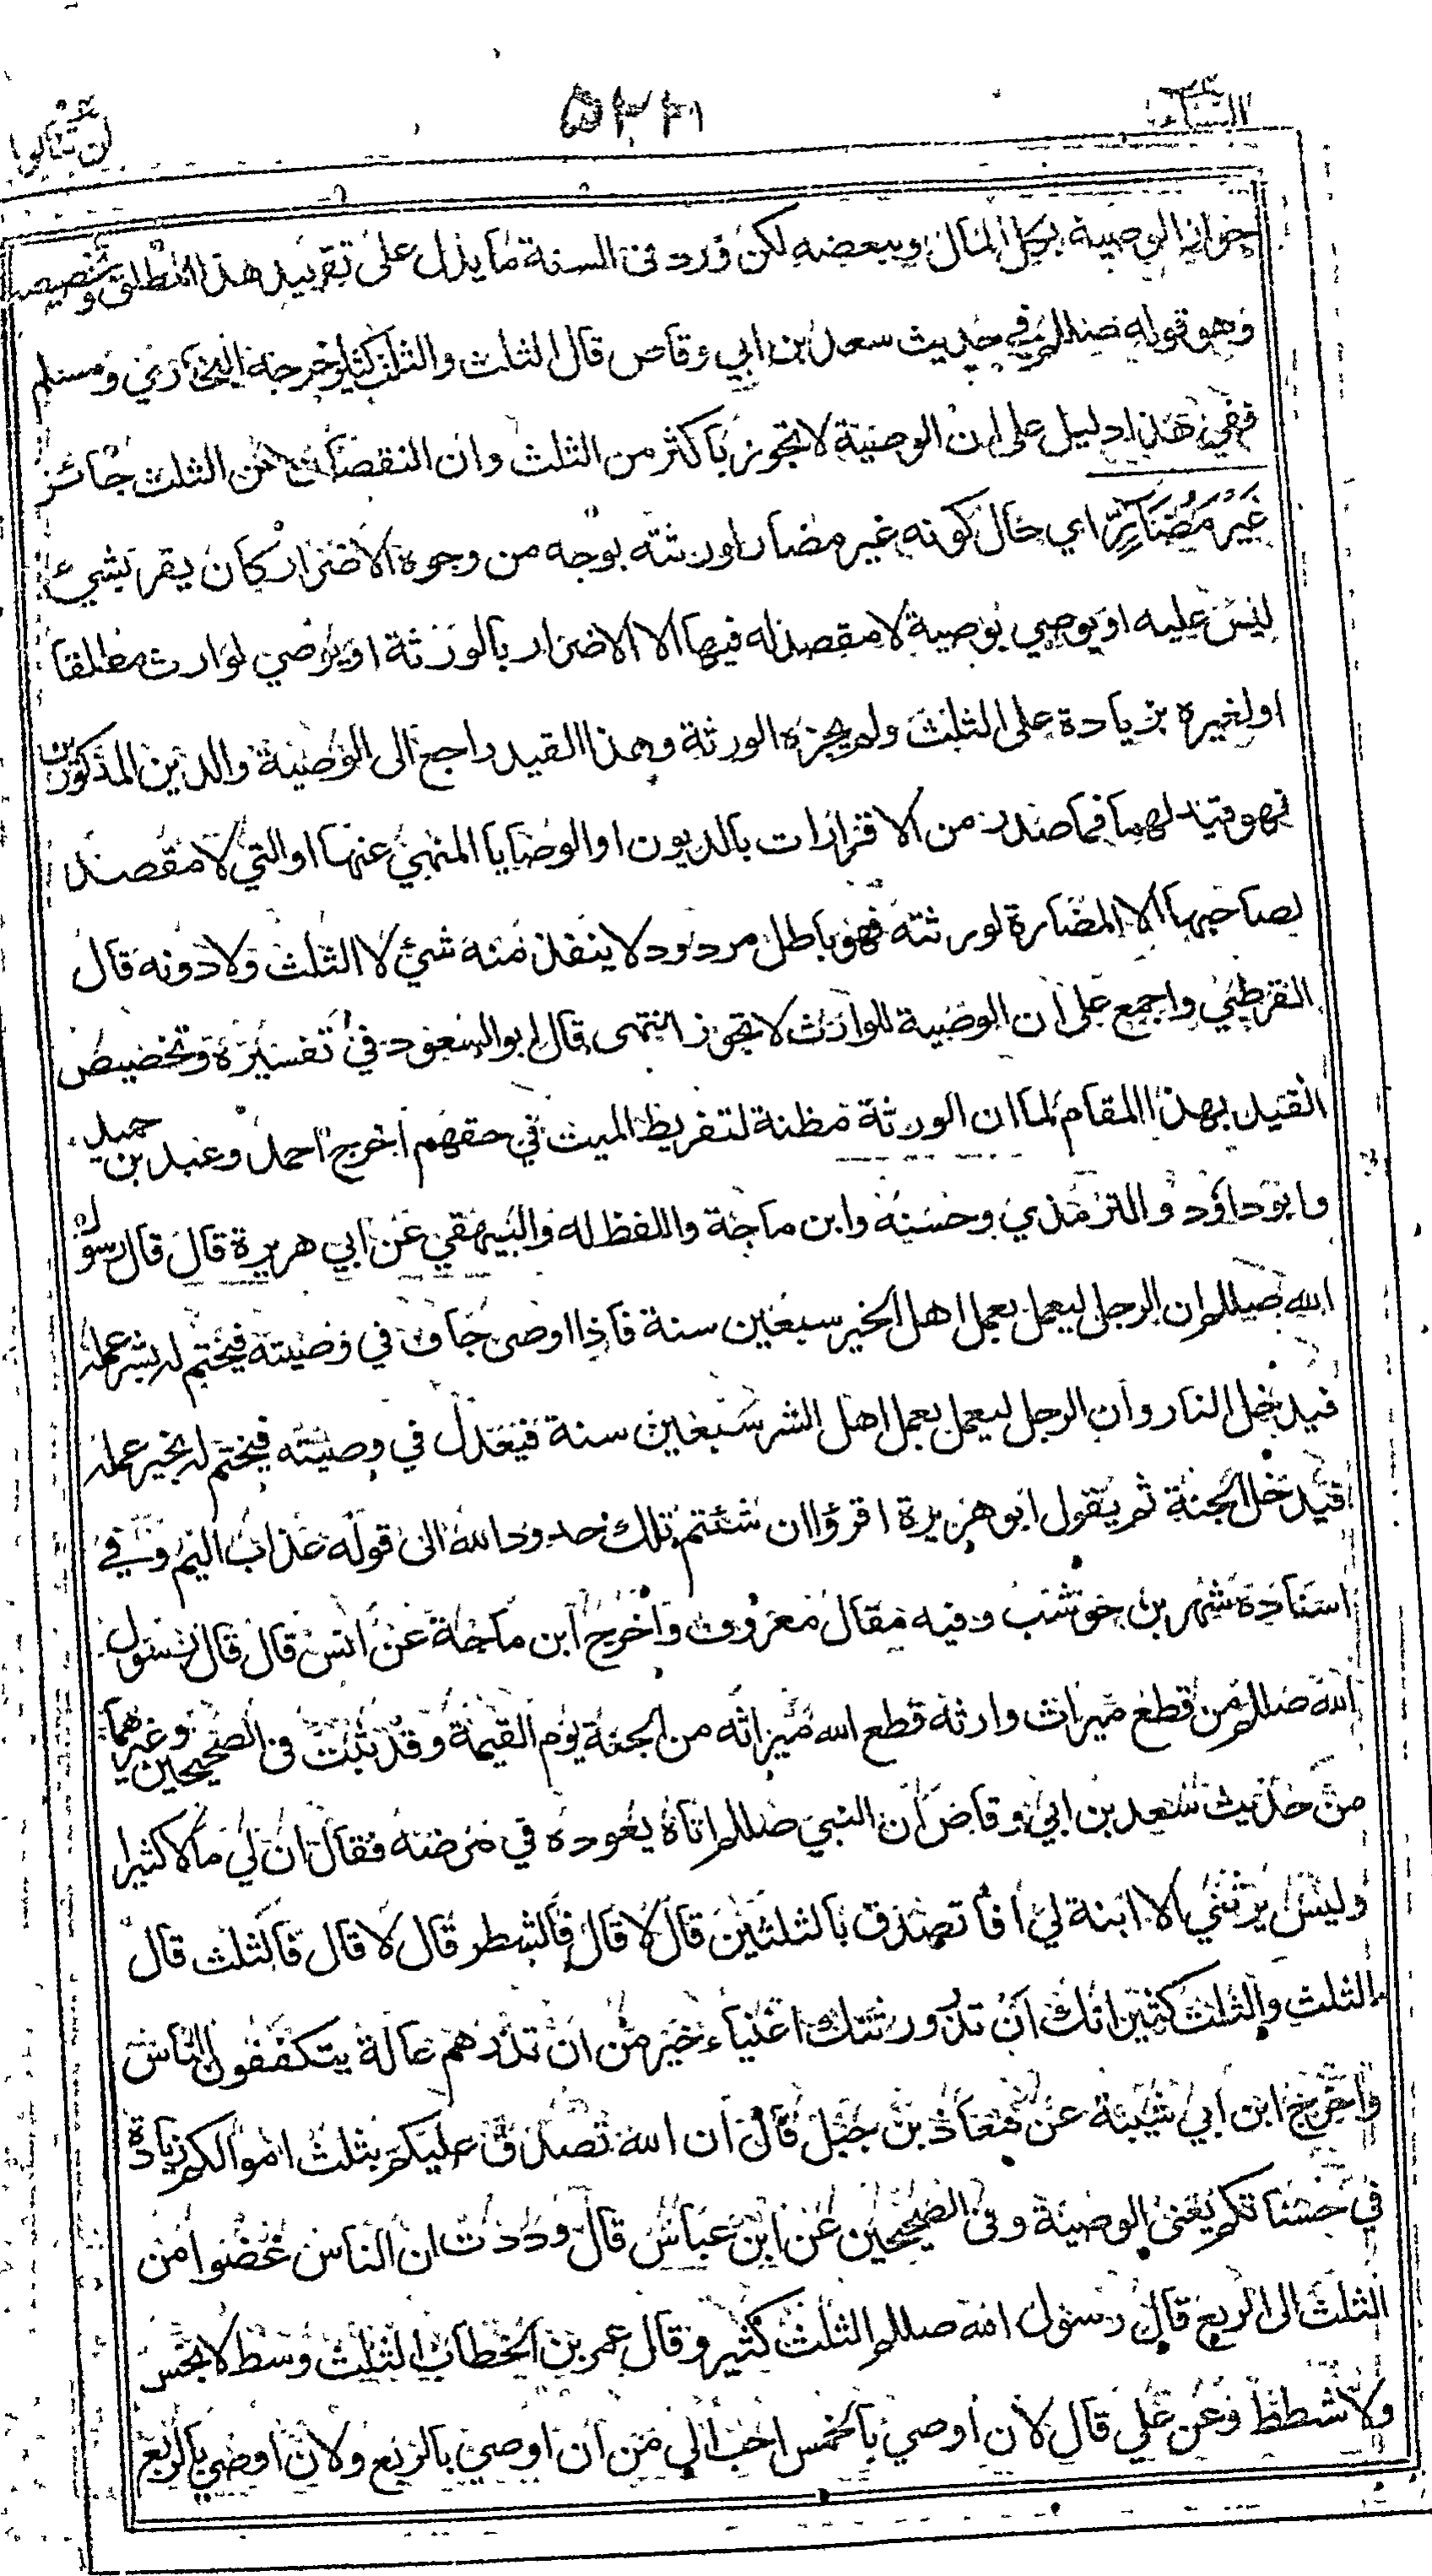 النساء
لن تنالوا
جواز الوصية بكل المال وببعضه لكن ورد في السنة ما يدل على تقييد هذا المطلق وتخصيصه
وهو قوله صللم في حديث سعد بن ابي وقاص قال الثلث والثلث كثير اخرجه البخاري ومسلم
ففي هذا دليل على ان الوصية لا تجوز باكثر من الثلث وان النقصان عن الثلث جائز
غَيْرَ مُضَآرٍّ اي حال كونه غير مضار لورثته بوجه من وجوه الاضرار كان يقر بشيء
ليس عليه او يوصي بوصية لا مقصد له فيها الا الاضرار بالورثة او يوصي لوارث مطلقا
او لغيره بزيادة على الثلث ولم يجزه الورثة وهذا القيد راجع الى الوصية والدين المذكورين
فهو قيد لهما فما صدر من الاقرارات بالديون او الوصايا المنهي عنها او التي لا مقصد
لصاحبها الا المضارة لورثته فهو باطل مردود لا ينفذ منه شئ لا الثلث ولا دونه قال
القرطبي واجمع على ان الوصية للوارث لا تجوز انتهى قال ابو السعود في تفسيره وتخصيص
القيد بهذا المقام لما ان الورثة مظنة لتفريط الميت في حقهم اخرج احمد وعبد بن حميد
وابو داؤد والترمذي وحسنه وابن ماجة واللفظ له والبيهقي عن ابي هريرة قال قال رسول
الله صللم ان الرجل ليعمل بعمل اهل الخير سبعين سنة فاذا اوصى جاف في وصيته فيختم له بشر عمله
فيدخل النار وان الرجل ليعمل بعمل اهل الشر سبعين سنة فيعدل في وصيته فيختم له بخير عمله
فيدخل الجنة ثم يقول ابو هريرة اقرؤا ان شئتم تلك حدود الله الى قوله عذاب اليم وفي
اسناده شهر بن حوشب وفيه مقال معروف واخرج ابن ماجة عن انس قال قال رسول
الله صللم من قطع ميراث وارثه قطع الله ميراثه من الجنة يوم القيمة وقد ثبت في الصحيحين وغيرهما
من حديث سعد بن ابي وقاص ان النبي صللم اتاه يعوده في مرضه فقال ان لي مالا كثيرا
وليس يرثني الا ابنة لي افاتصدق بالثلثين قال لا قال فالشطر قال لا قال فالثلث قال
الثلث والثلث كثير انك ان تذر ورثتك اغنياء خير من ان تذرهم عالة يتكففون الناس
واخرج ابن ابي شيبة عن معاذ بن جبل قال ان الله تصدق عليكم بثلث اموالكم زيادة
في حسناتكم يعني الوصية وفي الصحيحين عن ابن عباس قال وددت ان الناس غضوا من
الثلث الى الربع قال رسول الله صللم الثلث كثير وقال عمر بن الخطاب الثلث وسط لا بخس
ولا شطط وعن علي قال لان اوصي بالخمس احب الي من ان اوصي بالربع ولان اوصي بالربع